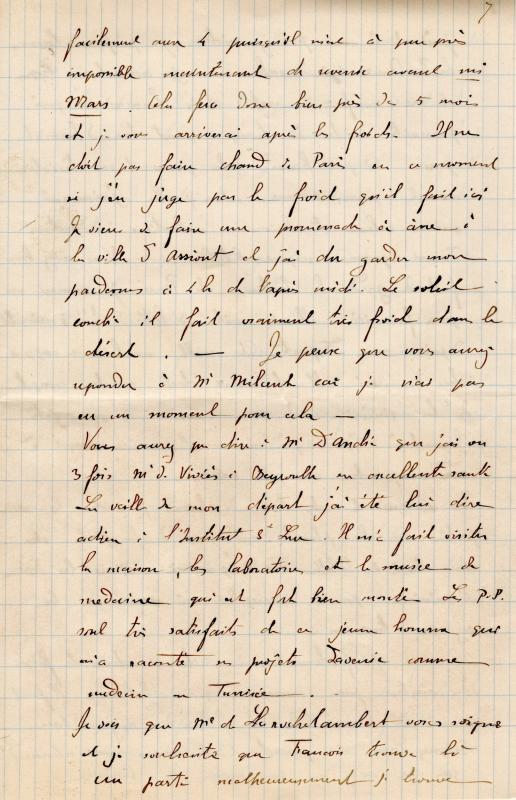 7
facilement aux 4 puisqu'il m'est à peu près
impossible maintenant de revenir avant mi
Mars. Cela fera donc bien près de 5 mois
et je vous arriverai après les froids. Il ne
doit pas faire chaud à Paris en ce moment
si j'en juge par le froid qu'il fait ici
Je viens de faire une promenade à âne à
la ville d' et j'ai du garder mon
pardessus à 4h de l'après midi. Le soleil
couché il fait vraiment très froid dans le
désert. — Je pense que vous aurez
repondu à Mr Milcent car je n'ai pas
eu un moment pour cela —
Vous aurez pu dire à Mr D'André que j'ai vu
3 fois Mr de Viviès à Beyrouth en excellente santé
La veille de mon départ j'ai été lui dire
adieu à l'Institut St Luc. Il m'a fait visiter
la maison, les laboratoires et le musée de
medecine qui est fort bien monté. Les P.P.
sont très satisfaits de ce jeune homme qui
m'a raconté ses projets d'avenir comme
medecin en Tunisie.
Je vois que Me de Larochelambert vous soigne
et je souhaite que François trouve là
un parti malheureusement je trouve